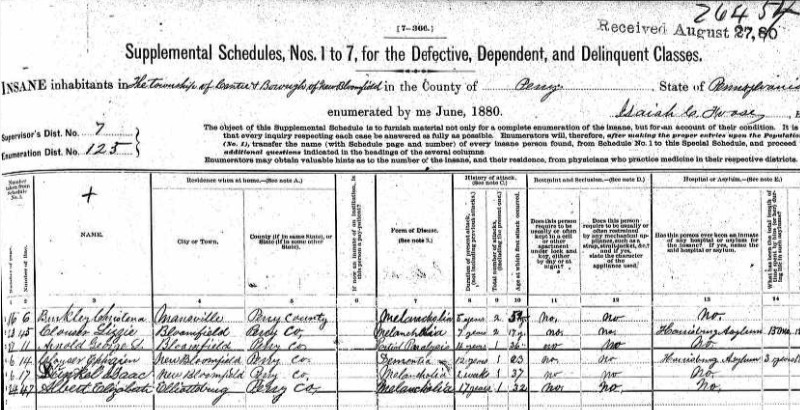 26454
[7-306.]
Received August 27, 80
Supplemental Schedules, Nos. 1 to 7, for the Defective, Dependent, and Delinquent Classes.
INSANE inhabitants in The township of Centre & Borough of New Bloomfield in the County of Perry, State of Pennsylvania
enumerated by me June, 1880.
Isaiah
Supervisor's Dist. No. 7
Enumeration Dist. No. 125
The object of this Supplemental Schedule is to furnish material not only for a complete enumeration of the insane, but for an account of their condition. It is
that every inquiry respecting each case be answered as fully as possible. Enumerators will, therefore, after making the proper entries upon the Population
(No. 1), transfer the name (with Schedule page and number) of every insane person found, from Schedule No. 1 to this Special Schedule, and proceed
additional questions indicated in the headings of the several columns.
Enumerators may obtain valuable hints as to the number of the insane, and their residence, from physicians who practice medicine in their respective districts.
Residence when at home.—(See note A.)
History of attack. (See note C.)
Restraint and Seclusion.—(See note D.)
Hospital or Asylum.—(See note E.)
NAME.
City or Town.
County (if in same State), or State (if in some other State).
If now an inmate of an institution, is this person a pay-patient?
Form of Disease.
Duration of present attack.
Total number of attacks.
Age at which first attack occurred.
Does this person require to be usually or often kept in a cell or other apartment under lock and key, either by day or at night?
Does this person require to be usually or often restrained by any mechanical appliance, such as a strap, straight-jacket, &c.? and if yes, state the character of the appliance used.
Has this person ever been an inmate of any hospital or asylum for the insane? If yes, name the said hospital or asylum.
What has been the total length of time spent by him (or her) during life in such asylums?
1 2 3 4 5 6 7 8 9 10 11 12 13 14
16 6 Mansville Perry County Melancholia 5 years 2 no, no, no.
45 Clouser Lizzie Bloomfield Perry Co, Melancholia 7 years 2 no. no. Harrisburg Asylum
12 11 Arnold George St. Bloomfield Perry Co. Paralysis 1 no no No.
6 14 New Bloomfield Perry co. Dementia 12 years 1 23 no. no. Harrisburg Asylum 3 years
6 17 Isaac New Bloomfield Perry co. Melancholia 2 weeks 1 37 no no No.
47 Albert Elizabeth Elliottsburg Perry Co, Melancholia 17 years 1 32 no. no. No.